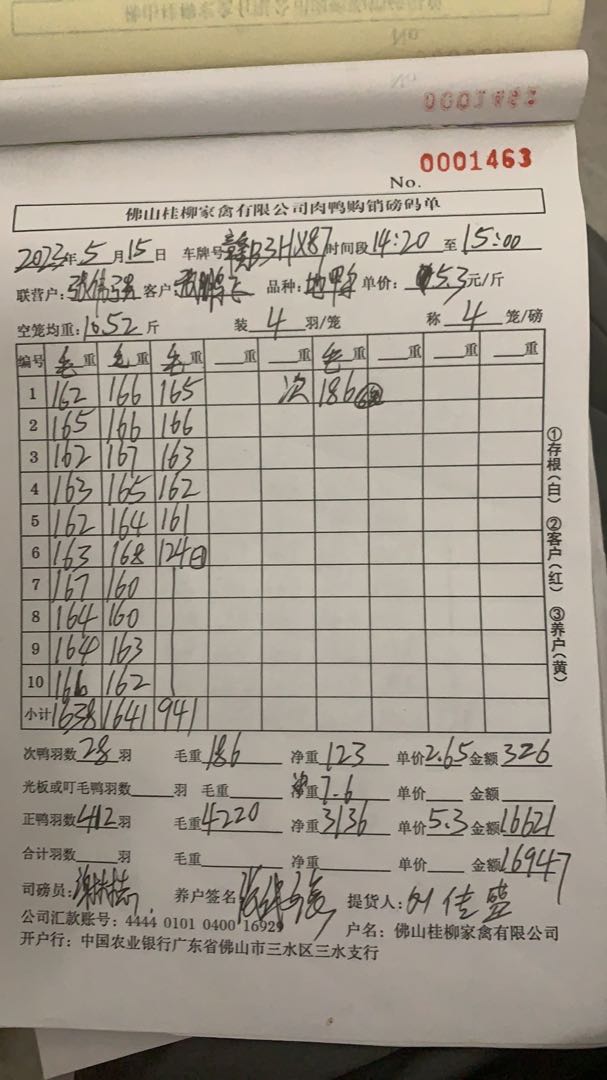 No.
0001463
佛山桂柳家禽有限公司肉鸭购销磅码单
2023年5月15日 车牌号 时间段14:20至15:00
联营户:张伟强 客户 张鹏飞 品种: 单价:5.3元/斤
空笼均重:10.52斤 装4羽/笼 称4笼/磅
编号 毛重 毛重 毛重 重 重 毛重 重 重 重
1 162 166 165 次 186
2 165 166 166
3 162 167 163
4 163 165 162
5 162 164 161
6 163 168 124
7 167 160
8 164 160
9 164 163
10 166 162
小计 1638 1641 941
①存根(白) ②客户(红) ③养户(黄)
次鸭羽数28羽 毛重186 净重123 单价2.65 金额326
光板或叮毛鸭羽数 羽 毛重 净重7.6 单价 金额
正鸭羽数412羽 毛重4220 净重3136 单价5.3 金额16621
合计羽数 羽 毛重 净重 单价 金额16947
司磅员: 养户签名 提货人:
公司汇款账号:4444 0101 0400 16929 户名:佛山桂柳家禽有限公司
开户行:中国农业银行广东省佛山市三水区三水支行